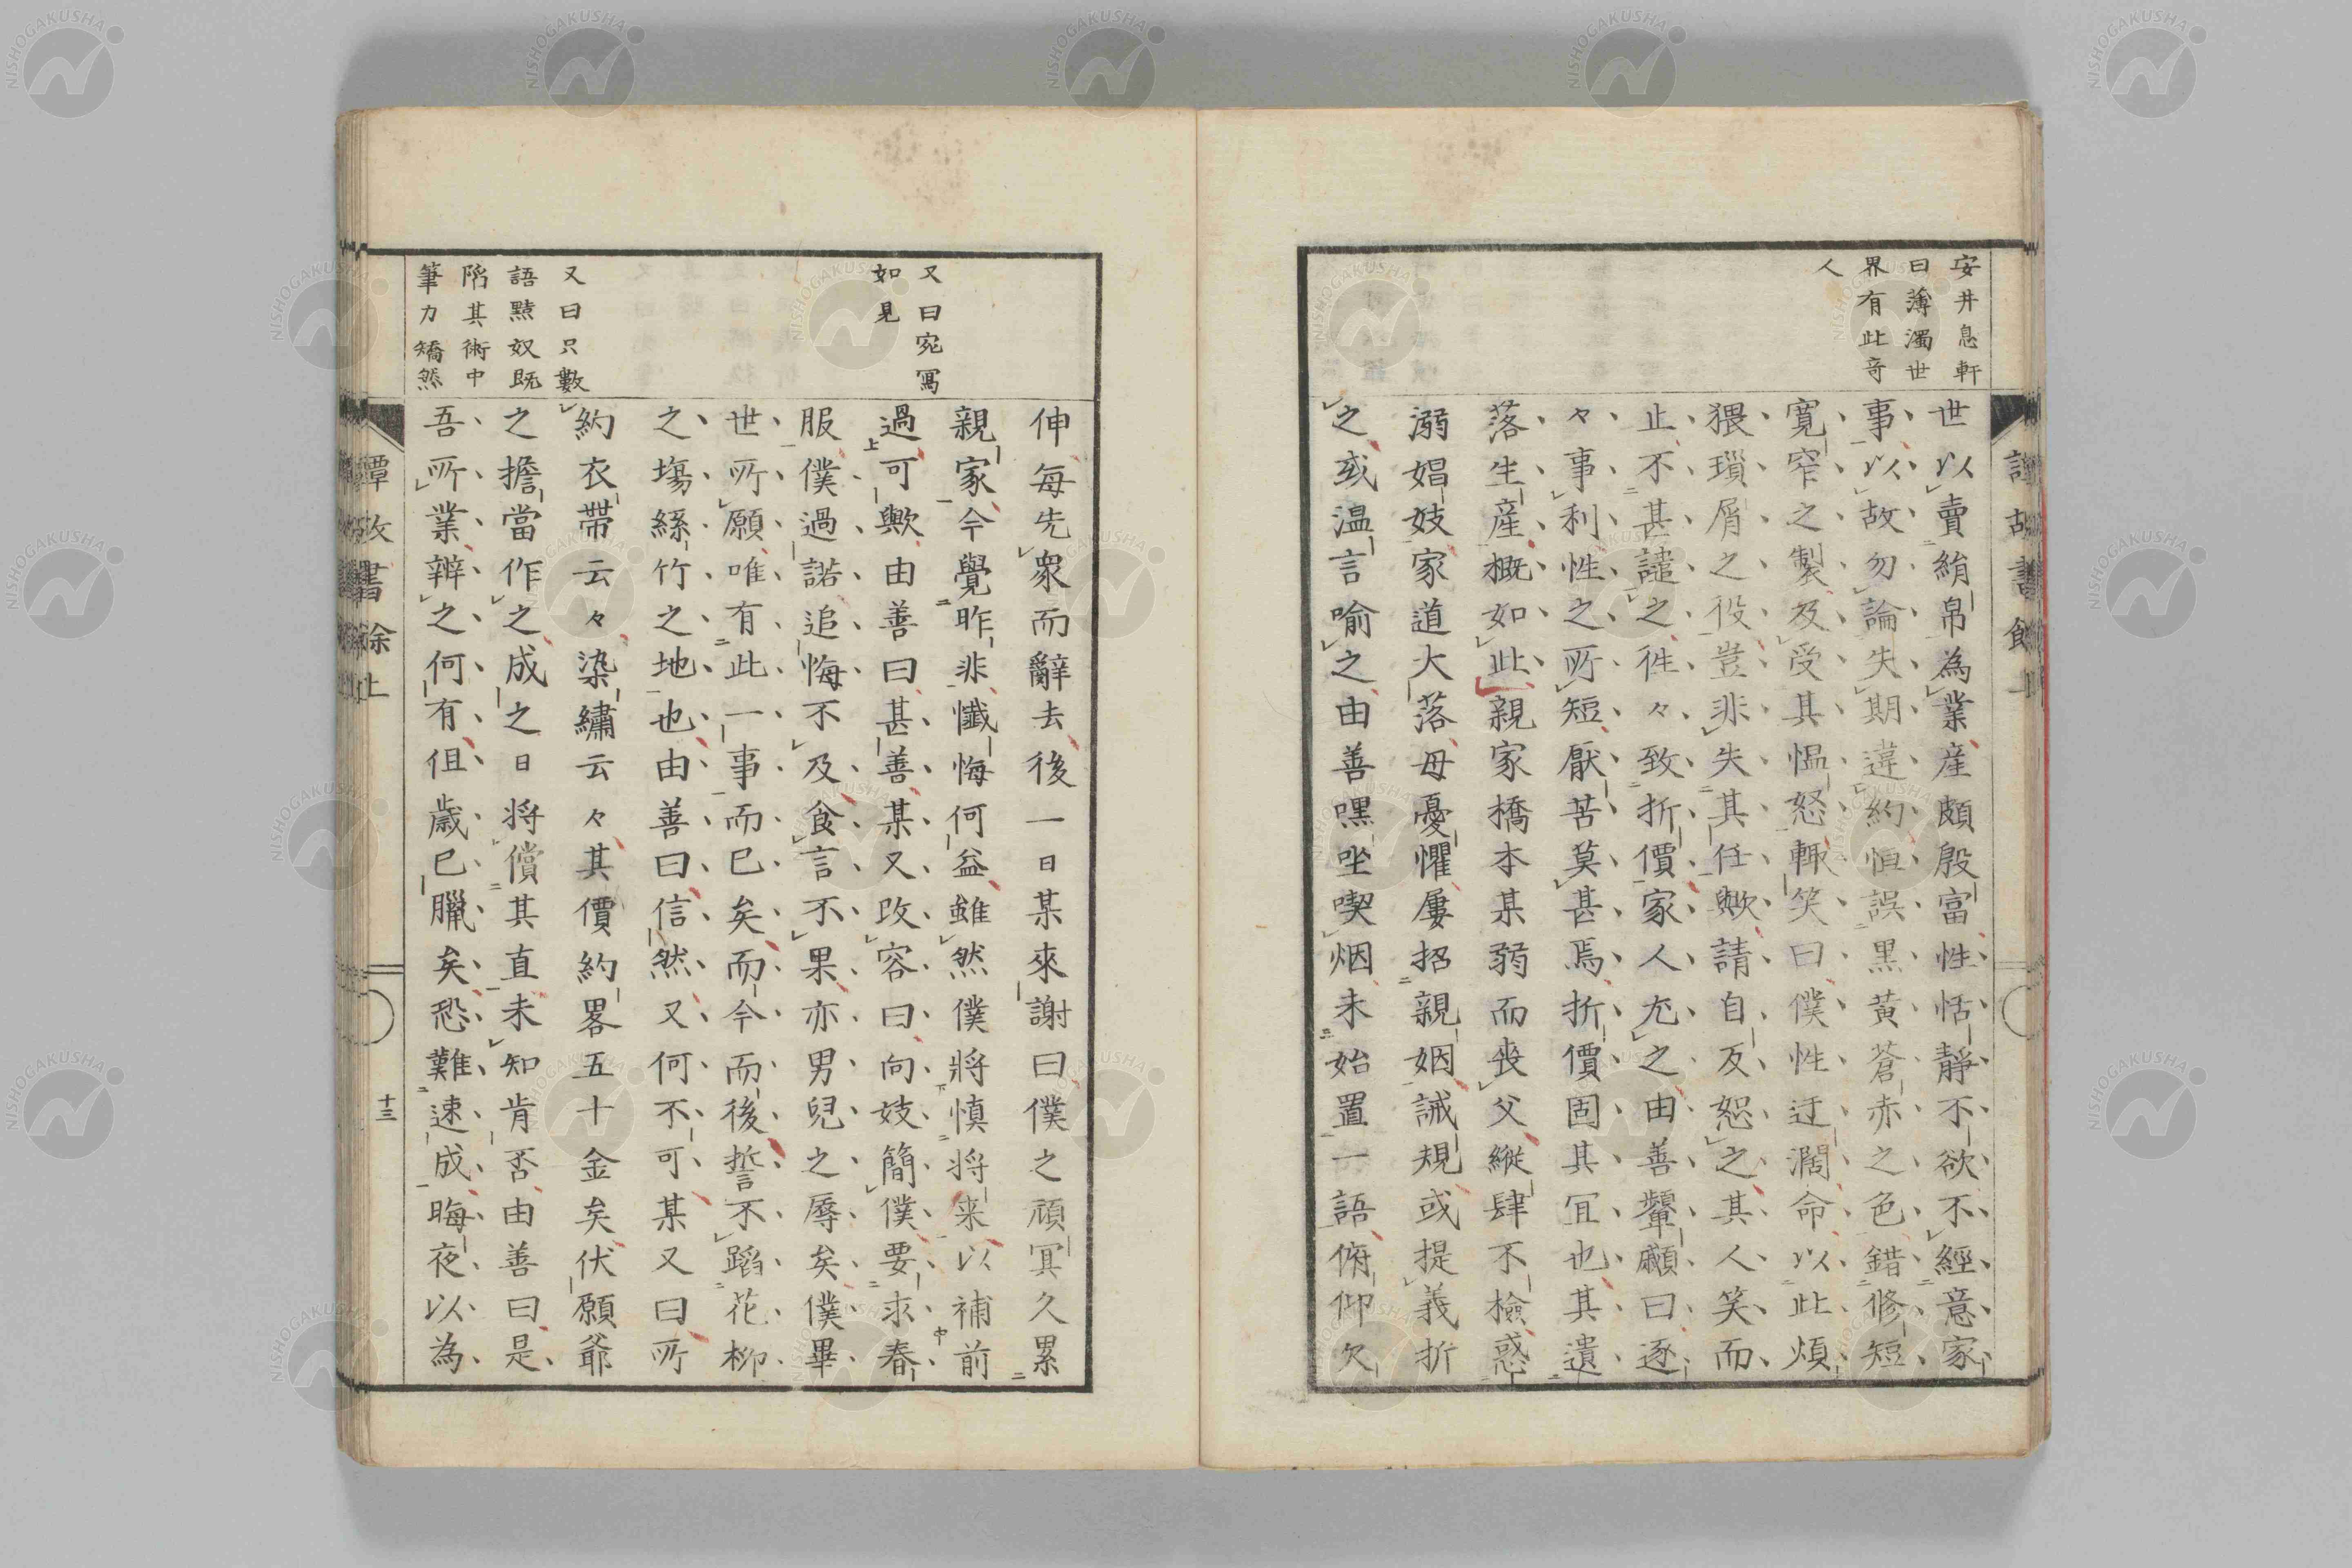 安井息軒
曰薄濁世
界有此竒
人
世以賣絹帛為業產頗殷富性恬靜不欲不經意家
事以故勿論失期違約恒誤黒黃蒼赤之色錯修短
寛窄之製及受其慍怒輒笑曰僕性迂濶命以此煩
猥瑣屑之役豈非失其任歟請自反恕之其人笑而
止不甚譴之徃々致折價家人尤之由善顰顣曰逐
々事利性之所短厭苦莫甚焉折價固其宜也其遺
落生産概如此親家橋本某弱而喪父縱肆不檢惑
溺娼妓家道大落母憂懼屢招親姻誡規或提義折
之或温言喻之由善嘿坐喫烟未始置一語俯仰欠
又曰宛冩
如見
又曰只數
語黠奴既
陷其術中
筆力矯然
伸每先衆而辭去後一日某來謝曰僕之頑冥久累
親家今覺昨非懺悔何益雖然僕將慎将来以補前
過可歟由善曰甚善某又攺容曰向妓簡僕要求春
服僕過諾追悔不及食言不果亦男兒之辱矣僕畢
世所願唯有此一事而已矣而今而後誓不蹈花柳
之塲絲竹之地也由善曰信然又何不可某又曰所
約衣帶云々染繡云々其價約畧五十金矣伏願爺
之擔當作之成之日将償其直未知肯否由善曰是
吾所業辨之何有但歳已臘矣恐難速成晦夜以為
譚故書餘上
十三